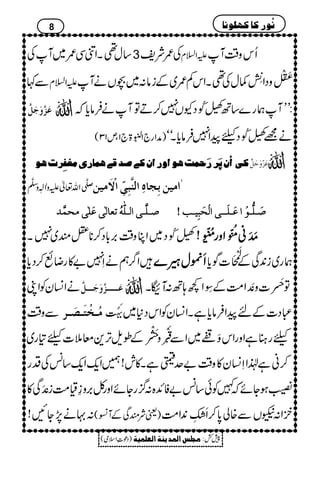 نُور کا کھلونا
8
اُس وقت آپ علیہ السلام کی عمر شریف 3 سال تھی۔ اتنی سی عمر میں آپ کی
عقل و دانش کمال کی تھی۔ کم عمری کے زمانہ میں بچوں نے آپ علیہ السلام سے کہا
: ’’آپ ہمارے ساتھ کھیل کود کیوں نہیں کرتے تو آپ نے فرمایا کہ اللہ عَزَّوَجَلَّ
نے مجھے کھیل کود کیلئے پیدا نہیں فرمایا۔‘‘ (مدارج النبوۃ ج ا ص ۳۱)
اللہ عَزَّوَجَلَّ کی اُن پَر رَحمت ہو اور ان کے صَدقے ہماری مغفِرت ہو
اٰمین بِجاہِ النَّبِیِّ الْاَمین صلَّی اللہ تعالیٰ علیہ واٰلہٖ وسلَّم
صَلُّوا عَلَی الْحَبِیب ! صلَّی اللہُ تعالٰی علٰی محمَّد
مَدَنی مُنّو اور مُنّیو! کھیل کود میں اپنا وقت برباد کرنا عقل مندی نہیں۔
ہماری زندگی کے لمحات گویا اَنمول ہیرے ہیں اگر ہم نے انہیں بے کار ضائع کر دیا
تو حسرت و ندامت کے سوا کچھ ہاتھ نہ آئے گا۔ اللہ عَزَّوَجَلَّ نے انسان کو اپنی
عبادت کے لئے پیدا فرمایا ہے۔ انسان کو اس دنیا میں بہت مُختصَر سے وقت
کیلئے رہنا ہے اور اس وقفے میں قبر و حشر کے طویل ترین معاملات کیلئے تیاری
کرنی ہے لہٰذا انسان کا وقت بے حد قیمتی ہے۔ کاش! ہمیں ایک ایک سانس کی قدر
نصیب ہو جائے کہ کہیں کوئی سانس بے فائدہ نہ گزر جائے اور کل بروزِ قیامت زندگی کا
خزانہ نیکیوں سے خالی پا کر اشکِ ندامت (یعنی شرمندگی کے آنسو) نہ بہانے پڑ جائیں!
پیش کش: مجلس المدینۃ العلمیۃ (دعوتِ اسلامی)